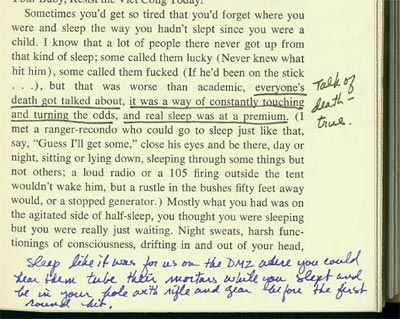 Poll Baby, Resist the Viet Cong Today!
Sometimes you'd get so tired that you'd forget where you
were and sleep the way you hadn't slept since you were a
child. I know that a lot of people there never got up from
that kind of sleep; some called them lucky (Never knew what
hit him), some called them fucked (If he'd been on the stick
. . .), but that was worse than academic, everyone's
death got talked about, it was a way of constantly touching
and turning the odds, and real sleep was at a premium. (I
met a ranger-recondo who could go to sleep just like that,
say, "Guess I'll get some," close his eyes and be there, day or
night, sitting or lying down, sleeping through some things but
not others; a loud radio or a 105 firing outside the tent
wouldn't wake him, but a rustle in the bushes fifty feet away
would, or a stopped generator.) Mostly what you had was on
the agitated side of half-sleep, you thought you were sleeping
but you were really just waiting. Night sweats, harsh func-
tionings of consciousness, drifting in and out of your head,
Talk of
death –
true.
Sleep like it was for us on the DMZ where you could
hear them tube their mortars while you slept and
be in your hole with rifle and gear before the first
round hit.